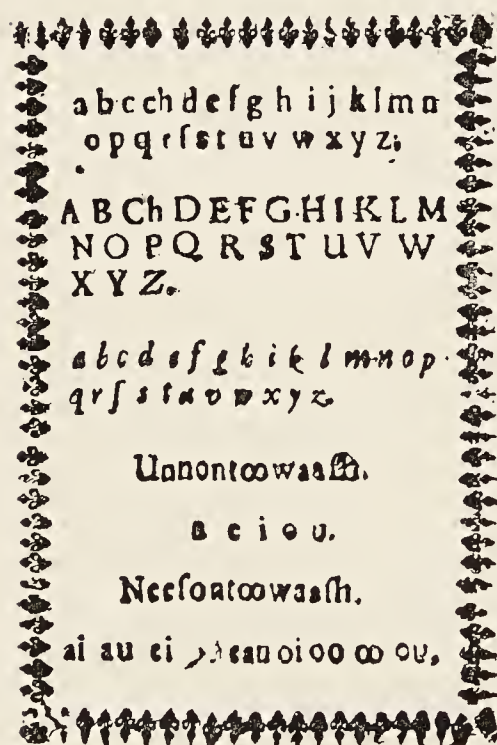 a b c ch d e f g h i j k l m n
o p q r ſ s t u v w x y z;
A B Ch D E F G H I K L M
N O P Q R S T U V W
X Y Z.
a b c d e f g h i k l m n o p
q r ſ s t u v w x y z.
Unnontꝏwaaſh.
a e i o u.
Neeſontꝏwaaſh.
ai au ei eau oi oo ꝏ ou.